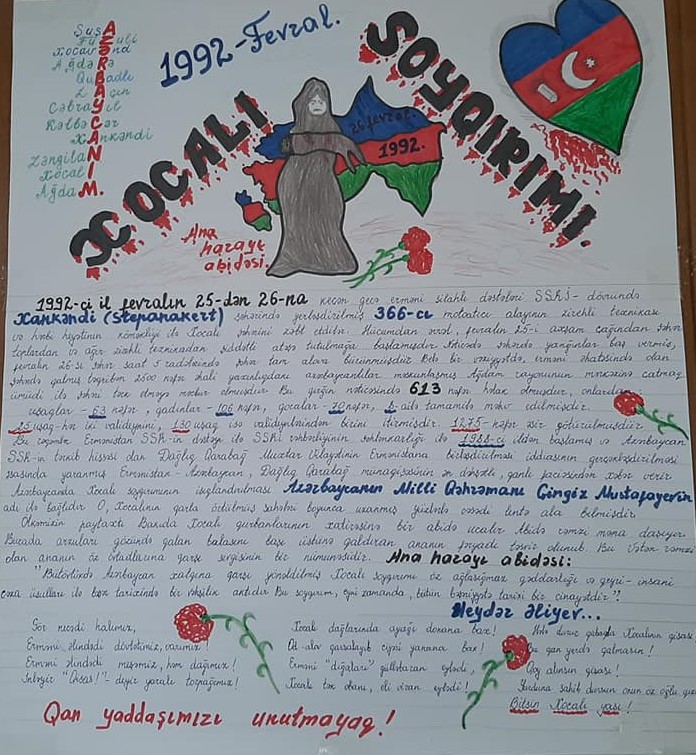 Şuşa
Füzuli
Xocavənd
Ağdərə
Qubadlı
Laçın
Cəbrayıl
Kəlbəcər
Xankəndi
Zəngilan
Xocalı
Ağdam.
1992-Fevral.
XOCALI SOYQIRIMI.
26 fevral.
1992.
Ana harayı abidəsi.
1992-ci il fevralın 25-dən 26-na keçən gecə erməni silahlı dəstələri SSRİ- dövründə
Xankəndi (Stepanakert) şəhərində yerləşdirilmiş 366-cı motoatıcı alayının zirehli texnikası
və hərbi heyətinin köməkliyi ilə Xocalı şəhərini zəbt etdilər. Hücumdan əvvəl, fevralın 25-i axşam çağından şəhər
toplardan və ağır zirehli texnikadan şiddətli atəşə tutulmağa başlamışdır. Nəticədə şəhərdə yanğınlar baş vermiş,
fevralın 26-sı səhər saat 5 radələrində şəhər tam alova bürünmüşdür. Belə bir vəziyyətdə, erməni əhatəsində olan
şəhərdə qalmış təqribən 2500 nəfər əhali yaxınlıqdakı azərbaycanlılar məskunlaşmış Ağdam rayonunun mərkəzinə çatmaq
ümidi ilə şəhəri tərk etməyə məcbur olmuşdur. Bu qırğın nəticəsində 613 nəfər həlak olmuşdur, onlardan
uşaqlar - 63 nəfər, qadınlar - 106 nəfər, qocalar - 70 nəfər, 8 ailə tamamilə məhv edilmişdir.
25 uşaq hər iki valideynini, 130 uşaq isə valideynlərindən birini itirmişdir. 1275 nəfər əsir götürülmüşdür.
Ermənistan SSR-in dəstəyi ilə SSRİ rəhbərliyinin səhlənkarlığı ilə 1988-ci ildən başlamış və Azərbaycan
SSR-in tərkib hissəsi olan Dağlıq Qarabağ Muxtar Vilayətinin Ermənistana birləşdirilməsi iddiasının gerçəkləşdirilməsi
əsasında yaranmış Ermənistan-Azərbaycan, Dağlıq Qarabağ münaqişəsinin ən dəhşətli, qanlı faciəsindən xəbər verir.
Azərbaycanda Xocalı soyqırımının işıqlandırılması Azərbaycanın Milli Qəhrəmanı Çingiz Mustafayevin
adı ilə bağlıdır. O, Xocalının qarla örtülmüş çöllərini boyunca uzanmış yüzlərlə cəsədi lentə ala bilmişdir.
Ölkəmizin paytaxtı Bakıda Xocalı qurbanlarının xatirəsinə bir abidə ucalır. Abidə rəmzi məna daşıyır.
Burada arzuları gözündə qalan balasını başı üstünə qaldıran ananın fəryadı təsvir olunub. Bu
olan ananın öz övladlarına qarşı sevgisinin bir nümunəsidir. Ana harayı abidəsi:
"Bütövlükdə Azərbaycan xalqına qarşı yönəldilmiş Xocalı soyqırımı öz ağlasığmaz qəddarlığı və qeyri-insani
cəza üsulları ilə bəşər tarixində bir vəhşilik aktıdır. Bu soyqırım, eyni zamanda, bütün bəşəriyyətə tarixi bir cinayətdir".
Heydər Əliyev...
Gör necədi halımız,
Erməni əlindədi dövlətimiz, varımız!
Erməni əlindədi meşəmiz, həm dağımız!
İnləyir "Qisas!"- deyir yaralı torpağımız!
Xocalı dağlarında ayağı donana bax!
Od-alov qarsalayıb cismi yanana bax!
Erməni "dığaları" güllətəran eylədi,
Xocalı tək obanı, eli viran eylədi!
qabağa Xocalının qisası
Bu qan yerdə qalmasın!
Qoy alınsın qisası!
Yurduna sahib dursun onun öz oğlu,
Bitsin Xocalı yası!
Qan yaddaşımızı unutmayaq!